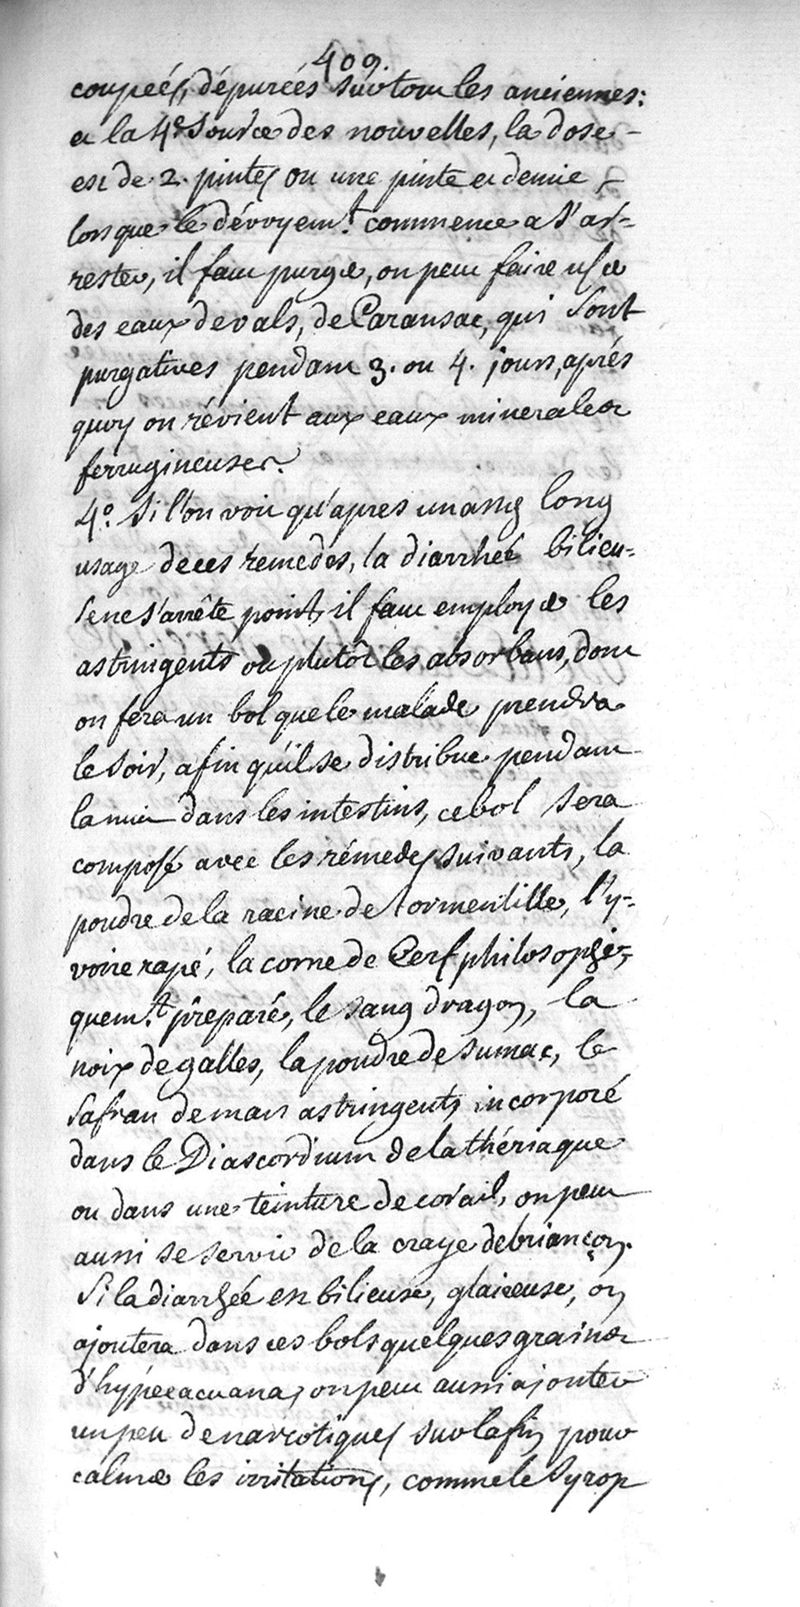 409.
coupeés, dépurées surtout les anciennes:
et la 4e source des nouvelles, la dose
est de 2. pintes ou une pinte et demie,
lorsque le dévoyemt. commence a s'ar=
rester, il faut purger, on peut faire user
des eaux de vals, de Caransac, qui sont
purgatives pendant 3. ou 4. jours, aprés
quoy on révient aux eaux minerales
ferrugineuses.
4o. si l'on voit qu'apres un assez long
usage de ces rémedes, la diarrheé bilieu=
se ne s'arrête point, il faut employer les
astringents ou plutôt les absorbans, dont
on fera un bol que le malade prendra
le soir, afin qu'il se distribue pendant
la nuit dans les intestins, ce bol sera
composé avec les rémedes suivants, la
poudre de la racine de tormentille, l'y=
voire rapé, la corne de Cerf philosophi=
quemt. préparé, le sang dragon, la
noix de galles, la poudre de sumac, le
safran de mars astringents incorporé
dans le Diascordium de la thériaque
ou dans une teinture de corail, on peut
aussi se servir de la craye de briançon.
Si la diarrhée est bilieuse, glaireuse, on
ajoutera dans ces bols quelques grains
d'hypécacuana, on peut aussi ajouter
un peu de narcotiques sur la fin pour
calmer les irritations, comme le syrop